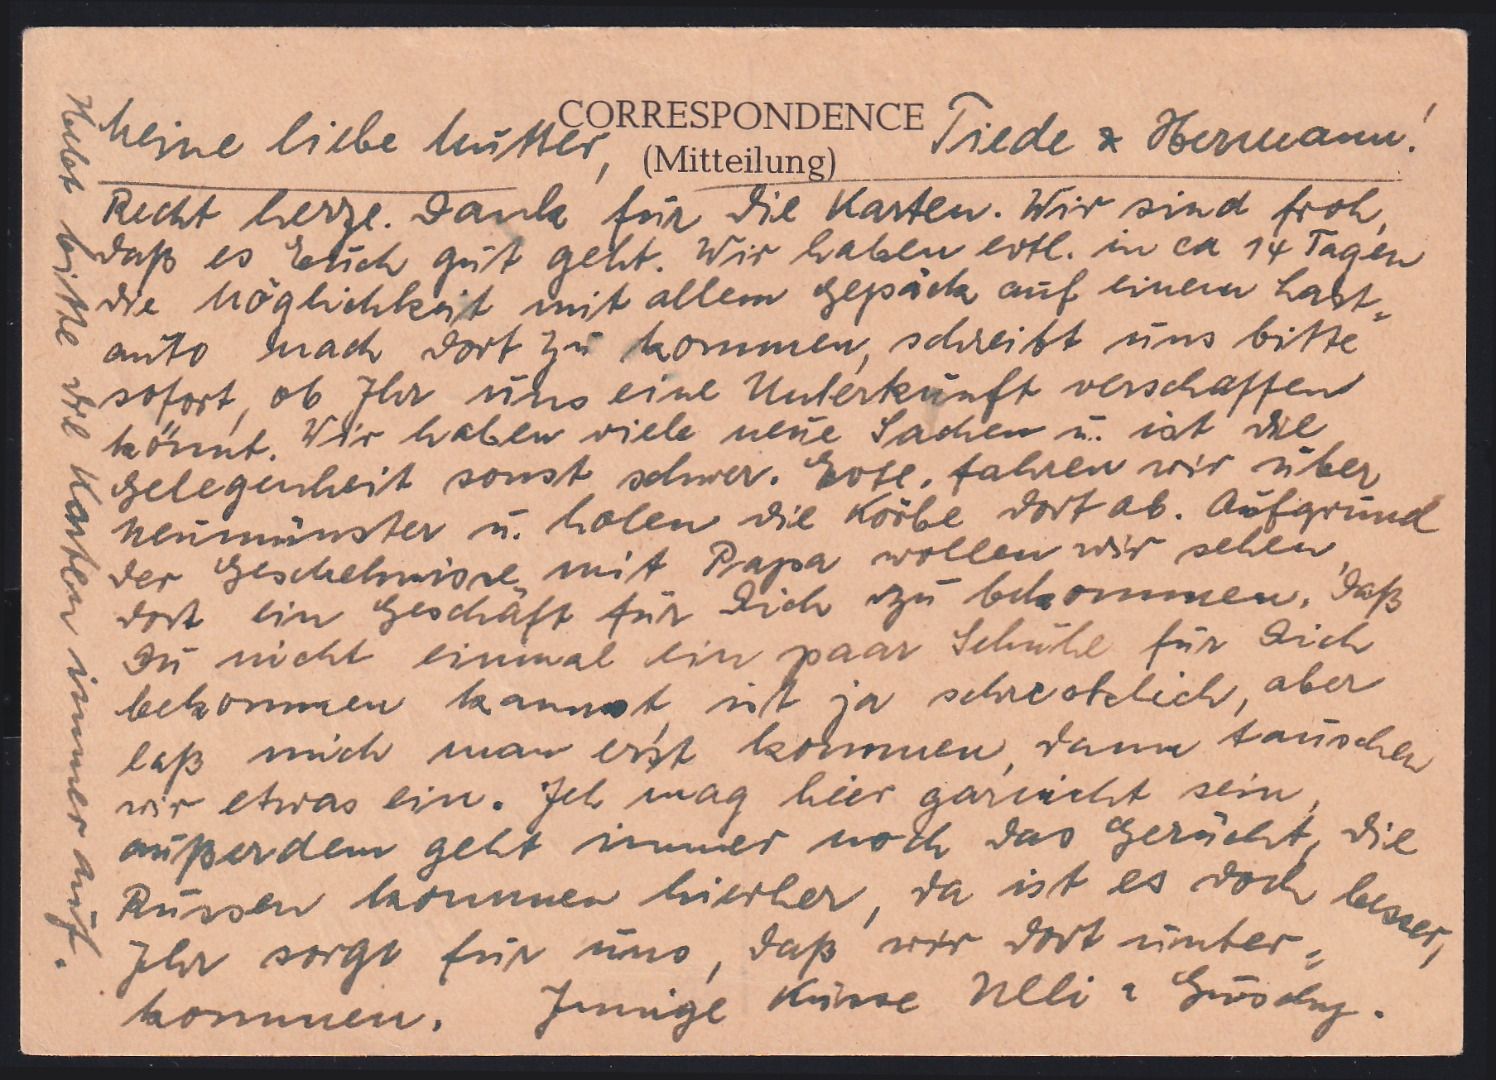 CORRESPONDENCE
(Mitteilung)
Meine liebe Mutter, Tiede & Hermann!
Recht herzl. Dank für die Karten. Wir sind froh,
daß es Euch gut geht. Wir haben evtl. in ca 14 Tagen
die Möglichkeit mit allem Gepäck auf einem Last-
auto nach dort zu kommen, schreibt uns bitte
sofort, ob Ihr uns eine Unterkunft verschaffen
könnt. Wir haben viele neue Sachen u. ist die
Gelegenheit sonst schwer. fahren wir über
Neumünster u. holen die Körbe dort ab. Aufgrund
der Geschehnisse mit Papa wollen wir sehen,
dort ein Geschäft für Dich zu bekommen. Daß
Du nicht einmal ein paar Schuhe für Dich
bekommen kannst, ist ja schrecklich, aber
laß mich man erst kommen, dann tauschen
wir etwas ein. Ich mag hier garnicht sein,
außerdem geht immer noch das Gerücht, die
Russen kommen hierher, da ist es doch besser,
Ihr sorgt für uns, daß wir dort unter-
kommen. Innige Küsse Ulli &
Hebt bitte die Karten immer auf.